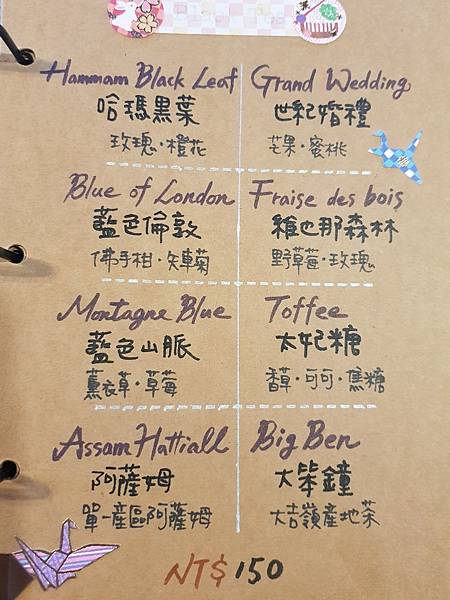 Hammam Black Leaf
哈瑪黑葉
玫瑰·橙花
Grand Wedding
世紀婚禮
芒果·蜜桃
Blue of London
藍色倫敦
佛手柑·矢車菊
Fraise des bois
維也那森林
野草莓·玫瑰
Montagne Blue
藍色山脈
薰衣草·草莓
Toffee
太妃糖
香草·可可·焦糖
Assam Hattiall
阿薩姆
單一產區阿薩姆
Big Ben
大笨鐘
大吉嶺產地茶
NT$150